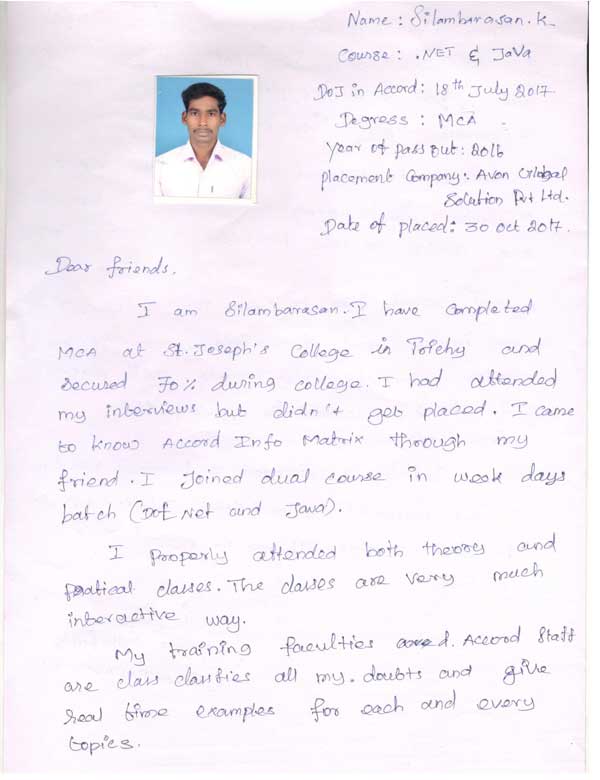 Name : Silambarasan.K
Course : .NET & Java
DOJ in Accord : 18th July 2017
Degress : MCA
Year of pass out : 2016
Placement Company : Avon Global
Solution Pvt Ltd.
Date of placed : 30 Oct 2017.
Dear friends,
I am Silambarasan. I have completed
MCA at St. Joseph's College in Trichy and
Secured 70% during college. I had attended
my interviews but didn't get placed. I came
to know Accord Info Matrix through my
friend. I joined dual course in week days
batch (Dot Net and Java).
I properly attended both theory and
pratical classes. The classes are very much
interactive way.
My training faculties Accord Staff
are class clarifies all my. doubts and give
real time examples for each and every
topics.